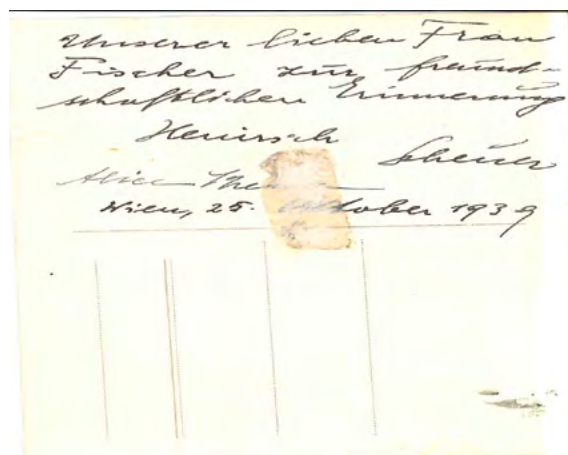 Unserer lieben Frau
Fischer zur freund-
schaftlichen Erinnerung
Heinrich Scheuer
Alice
Wien, 25. Oktober 1939